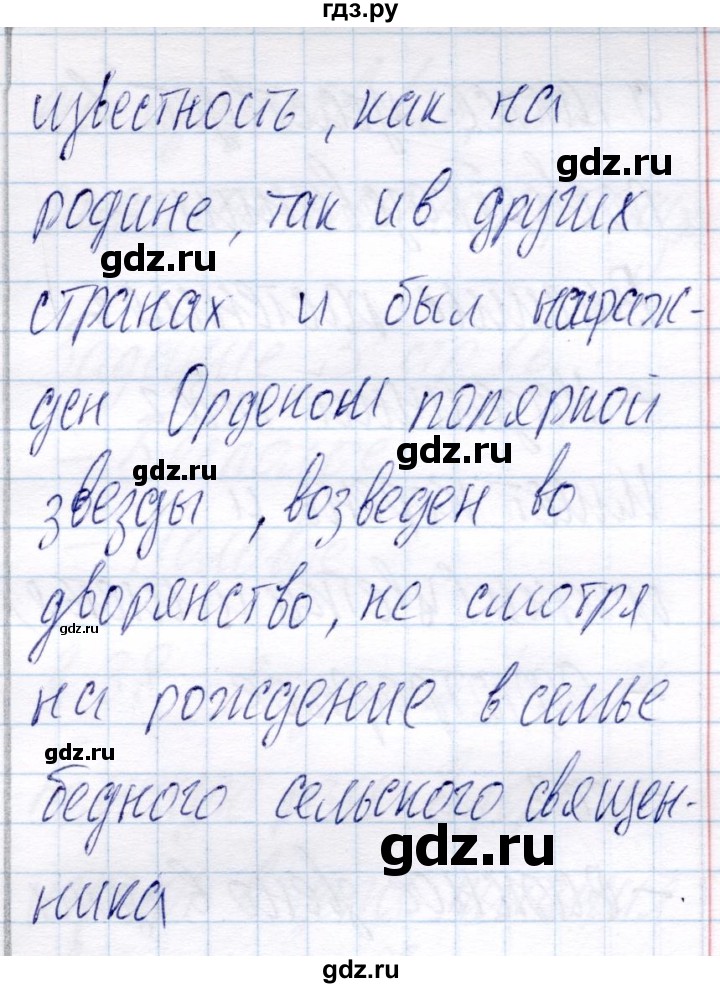 гдз.ру
известность, как на
gdz.ru
родине, так и в других
gdz.ru
странах и был награж-
ден Орденом полярной
gdz.ru
gdz.ru
звезды, возведен во
дворянство, не смотря
gdz.ru
на рождение в семье
gdz.ru
бедного сельского священ-
gdz.ru
ника
gdz.ru